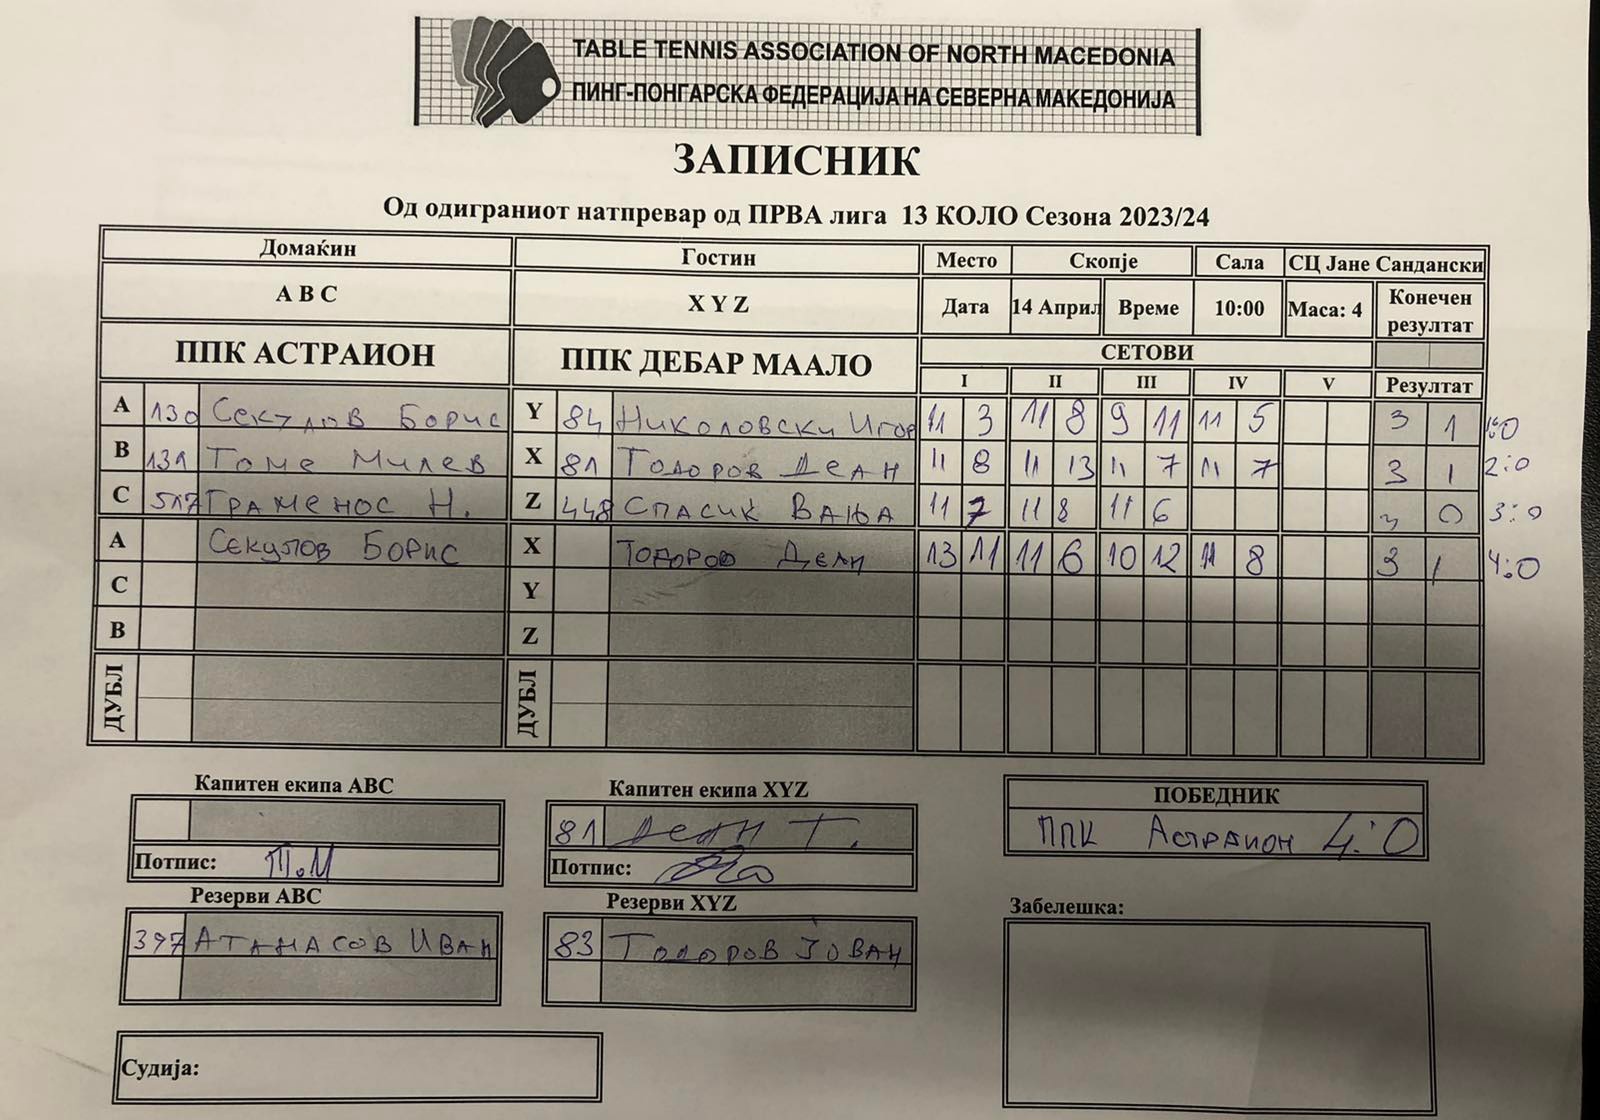 TABLE TENNIS ASSOCIATION OF NORTH MACEDONIA
ПИНГ-ПОНГАРСКА ФЕДЕРАЦИЈА НА СЕВЕРНА МАКЕДОНИЈА
ЗАПИСНИК
Од одиграниот натпревар од ПРВА лига 13 КОЛО Сезона 2023/24
Домаќин Гостин Место Скопје Сала СЦ Јане Сандански
A B C X Y Z Дата 14 Април Време 10:00 Маса: 4 Конечен резултат
ППК АСТРАИОН ППК ДЕБАР МААЛО СЕТОВИ
I II III IV V Резултат
A 130 Секулов Борис Y 84 Николовски Игор 11 3 11 8 9 11 11 5 3 1 1:0
B 131 Томе Милев X 81 Тодоров Деан 11 8 11 13 11 7 11 7 3 1 2:0
C 517 Граменос Н. Z 448 Спасиќ Вања 11 7 11 8 11 6 3 0 3:0
A Секулов Борис X Тодоров Деан 13 11 11 6 10 12 11 8 3 1 4:0
C Y
B Z
ДУБЛ ДУБЛ
Капитен екипа ABC Капитен екипа XYZ ПОБЕДНИК
81 Деан Т. ППК Астраион 4:0
Потпис: Т.М Потпис:
Резерви ABC Резерви XYZ Забелешка:
397 Атанасов Иван 83 Тодоров Јован
Судија: